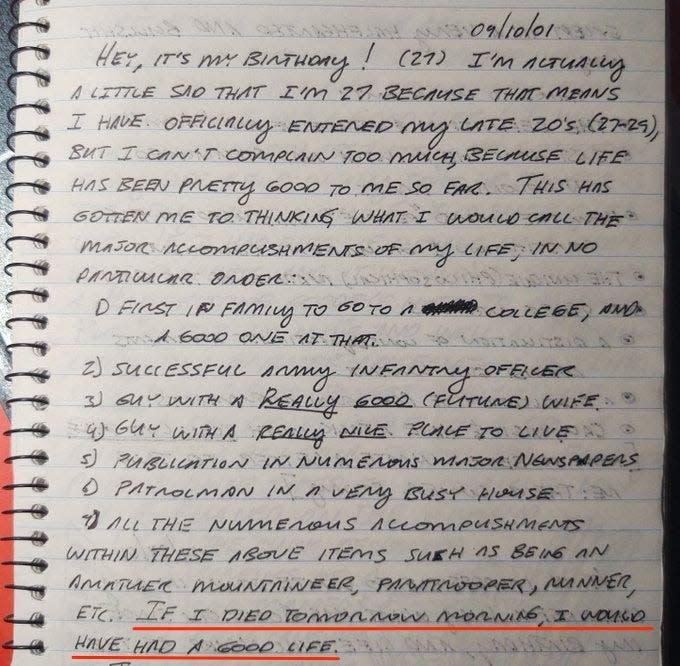 09/10/01
HEY, IT'S MY BIRTHDAY! (27) I'M ACTUALLY
A LITTLE SAD THAT I'M 27 BECAUSE THAT MEANS
I HAVE OFFICIALLY ENTERED MY LATE 20'S, (27-29),
BUT I CAN'T COMPLAIN TOO MUCH, BECAUSE LIFE
HAS BEEN PRETTY GOOD TO ME SO FAR. THIS HAS
GOTTEN ME TO THINKING WHAT I WOULD CALL THE
MAJOR ACCOMPLISHMENTS OF MY LIFE, IN NO
PARTICULAR ORDER.
1) FIRST IN FAMILY TO GO TO A COLLEGE, AND
A GOOD ONE AT THAT.
2) SUCCESSFUL ARMY INFANTRY OFFICER
3) GUY WITH A REALLY GOOD (FUTURE) WIFE.
4) GUY WITH A REALLY NICE PLACE TO LIVE
5) PUBLICATION IN NUMEROUS MAJOR NEWSPAPERS
6) PATROLMAN IN A VERY BUSY HOUSE
7) ALL THE NUMEROUS ACCOMPLISHMENTS
WITHIN THESE ABOVE ITEMS SUCH AS BEING AN
AMATUER MOUNTAINEER, PARATROOPER, RUNNER,
ETC. IF I DIED TOMORROW MORNING, I WOULD
HAVE HAD A GOOD LIFE.